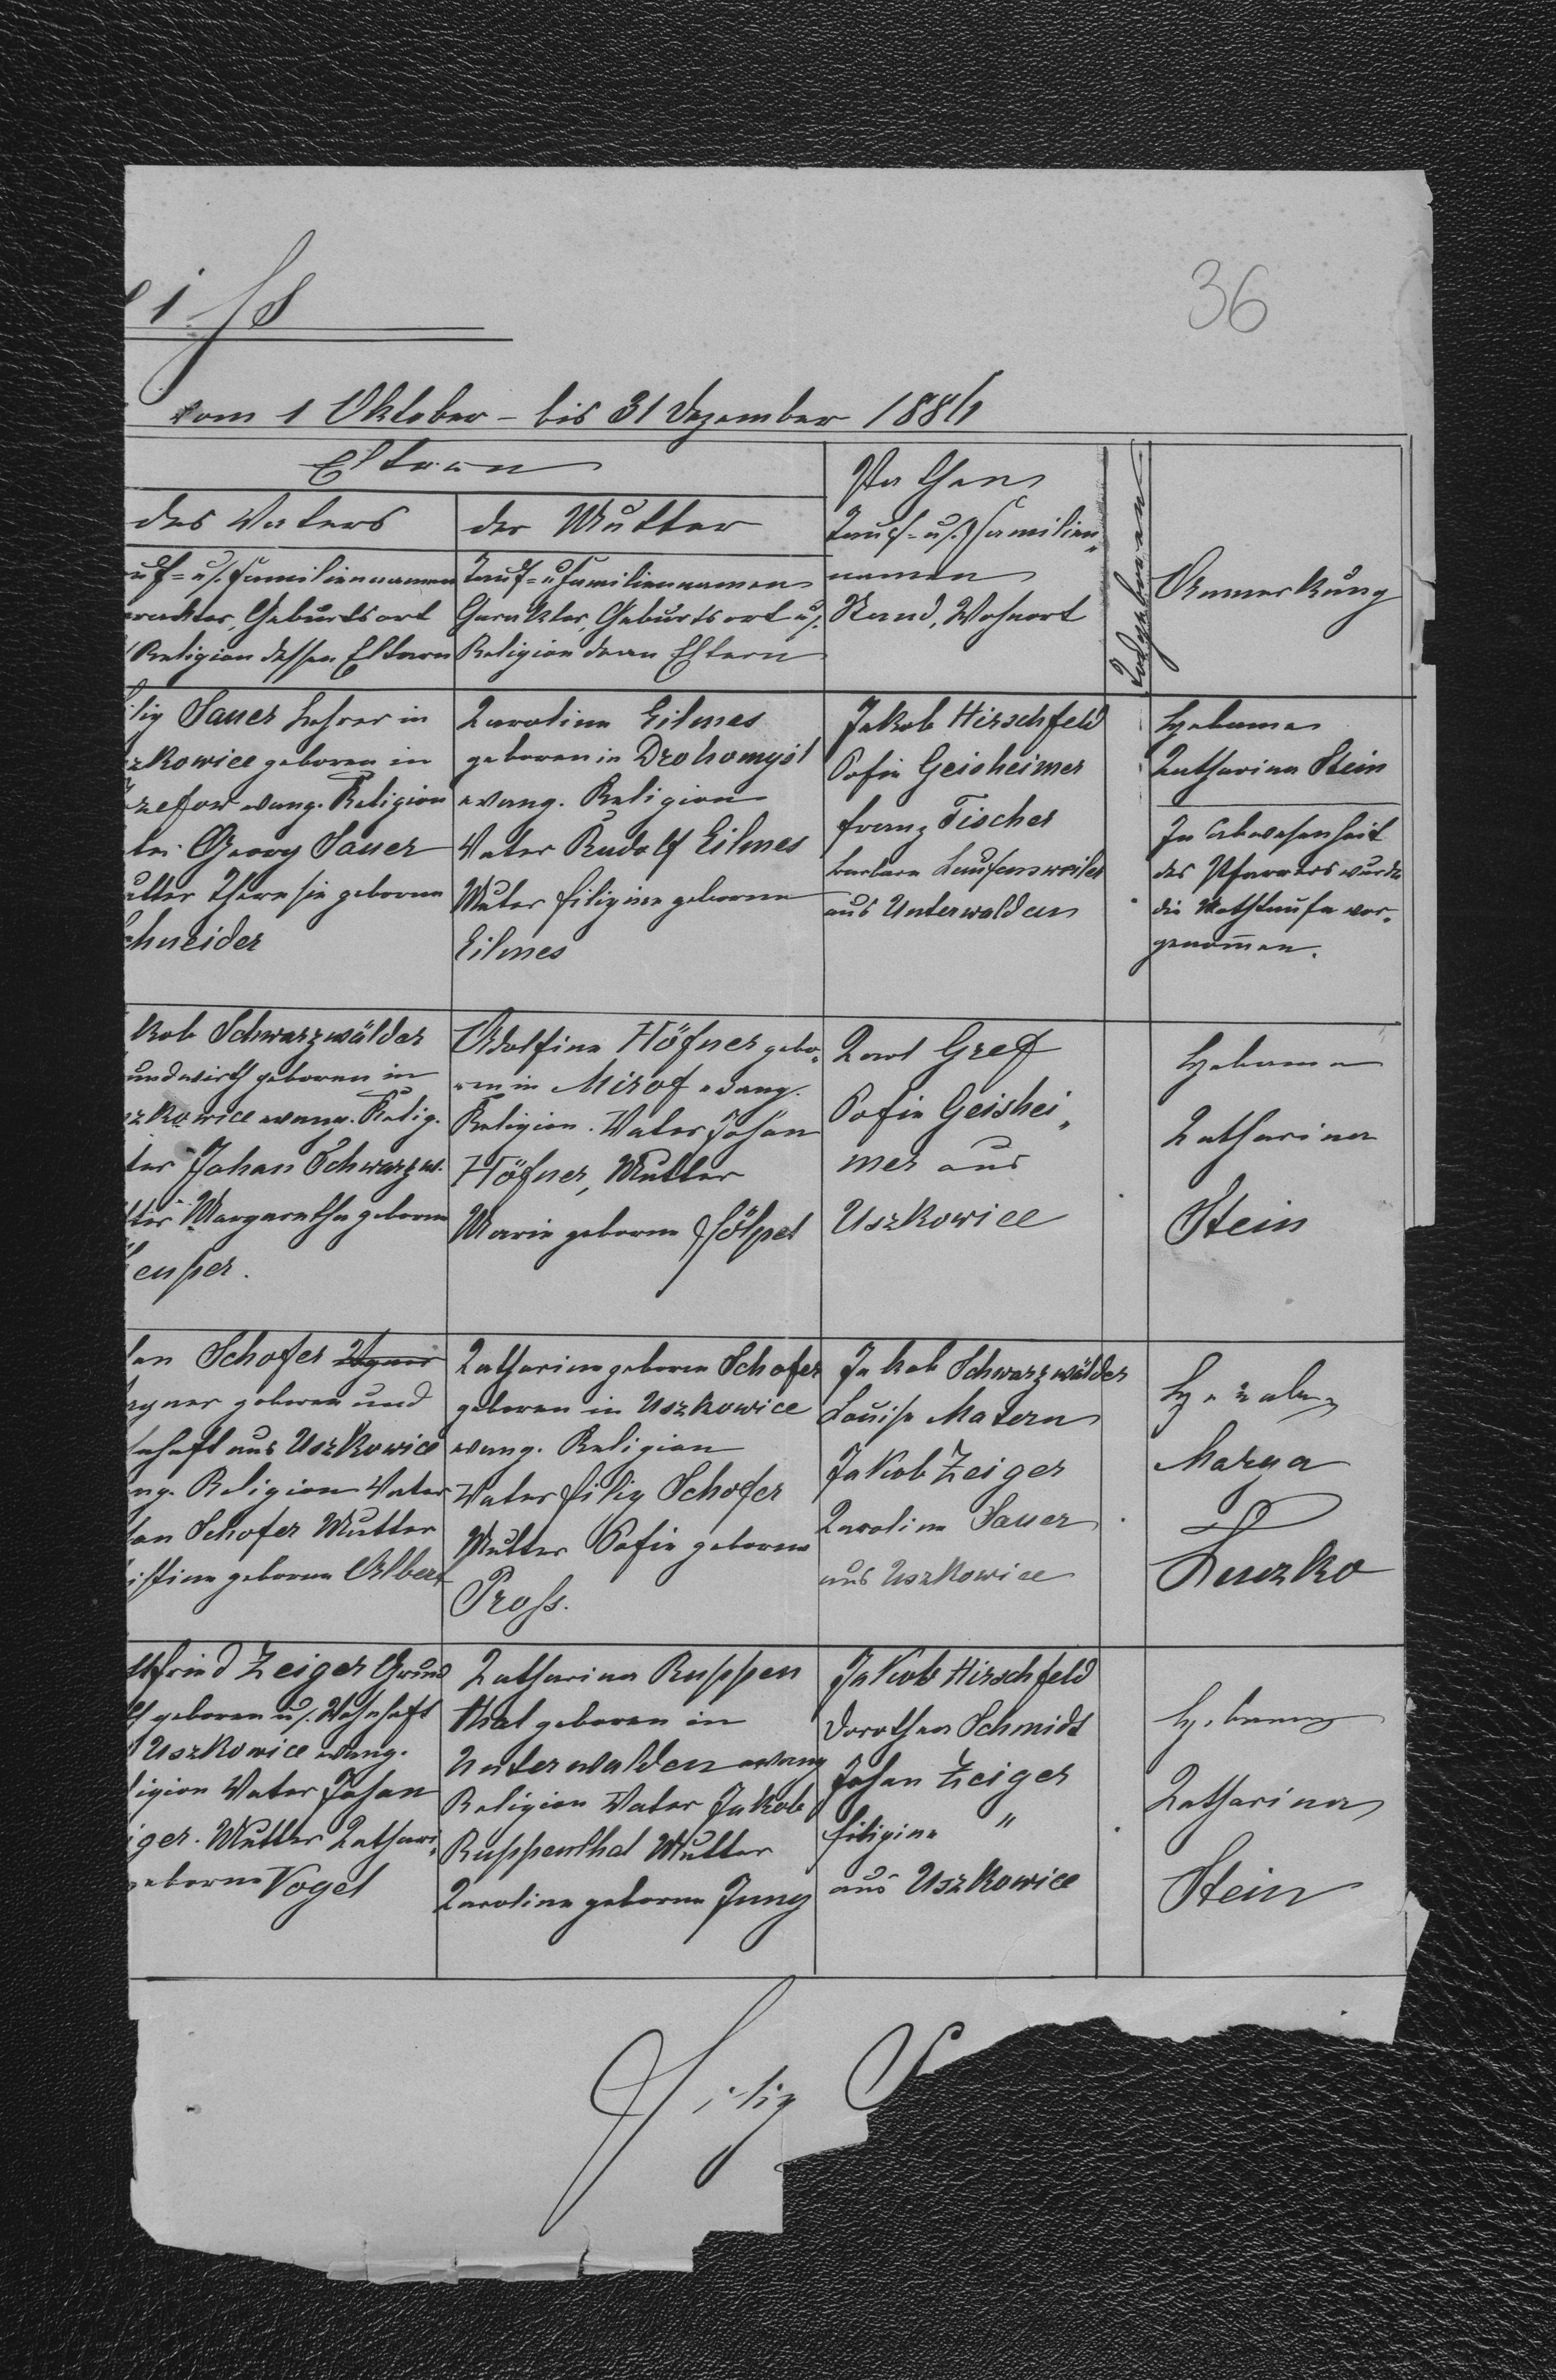 36
vom 1 Oktober - bis 31 Dezember 1884
Eltern
des Vaters
uf- u/. Familiennamen
rackter, Geburtsort
Religion dessen Eltern
der Mutter
Tauf- u Familiennamen
Garakter, Geburtsort u/.
Religion deren Eltern
Pathen
Tauf- u/. Familien„
namen
Stand, Wohnort
Todgeboren
Anmerkung
ilip Sauer Lehrer in
zkowice geboren in
zefow evang. Religion
ter Georg Sauer
utter Theresie geborne
chneider
Karoline Eilmes
geboren in Drohomyśl
evang. Religion
Vater Rudolf Eilmes
Mutter Filipine geborne
Eilmes
Jakob Hirschfeld
Sofie Geisheimer
Franz Fischer
Barbara Laufersweiler
aus Unterwalden
Hebame
Katharina Stein
In Abwesenheit
des Pfarrers wurde
die Nothtaufe vor„
genom̄en.
kob Schwarzwälder
undwirth geboren in
zkowice evang. Relig.
ter Johan Schwarzw.
tter Margaretha geborne
Adolfine Höfner gebo„
ren in Mirof evang.
Religion. Vater Johan
Höfner, Mutter
Marie geborne Hölpel
Karl Gref
Sofie Geishei„
mer aus
Uszkowice
Hebame
Katharina
Stein
an Schofer Wagner
agner geboren und
nhaft aus Uszkowice
ng. Religion Vater
an Schofer Mutter
istine geborne Albert
Katharina geborne Schofer
geboren in Uszkowice
evang. Religion
Vater Filip Schofer
Mutter Sofie geborne
Proß.
Jakob Schwarzwälder
Louise Matern
Jakob Zeiger
Karoline Sauer
aus Uszkowice
Marya
Luczko
ttfried Zeiger Grund
th geboren u/. Wohnhaft
Uszkowice evang.
ligion Vater Johan
iger. Mutter Kathari„
geborne Vogel
Katharina Ruppen
thal geboren in
Unterwalden evang
Religion Vater Jakob
Ruppenthal Mutter
Karoline geborne Jung
Jakob Hirschfeld
Dorothea Schmidt
Johan Zeiger
Filipine "
aus Uszkowice
Hebame
Katharina
Stein
Filip S